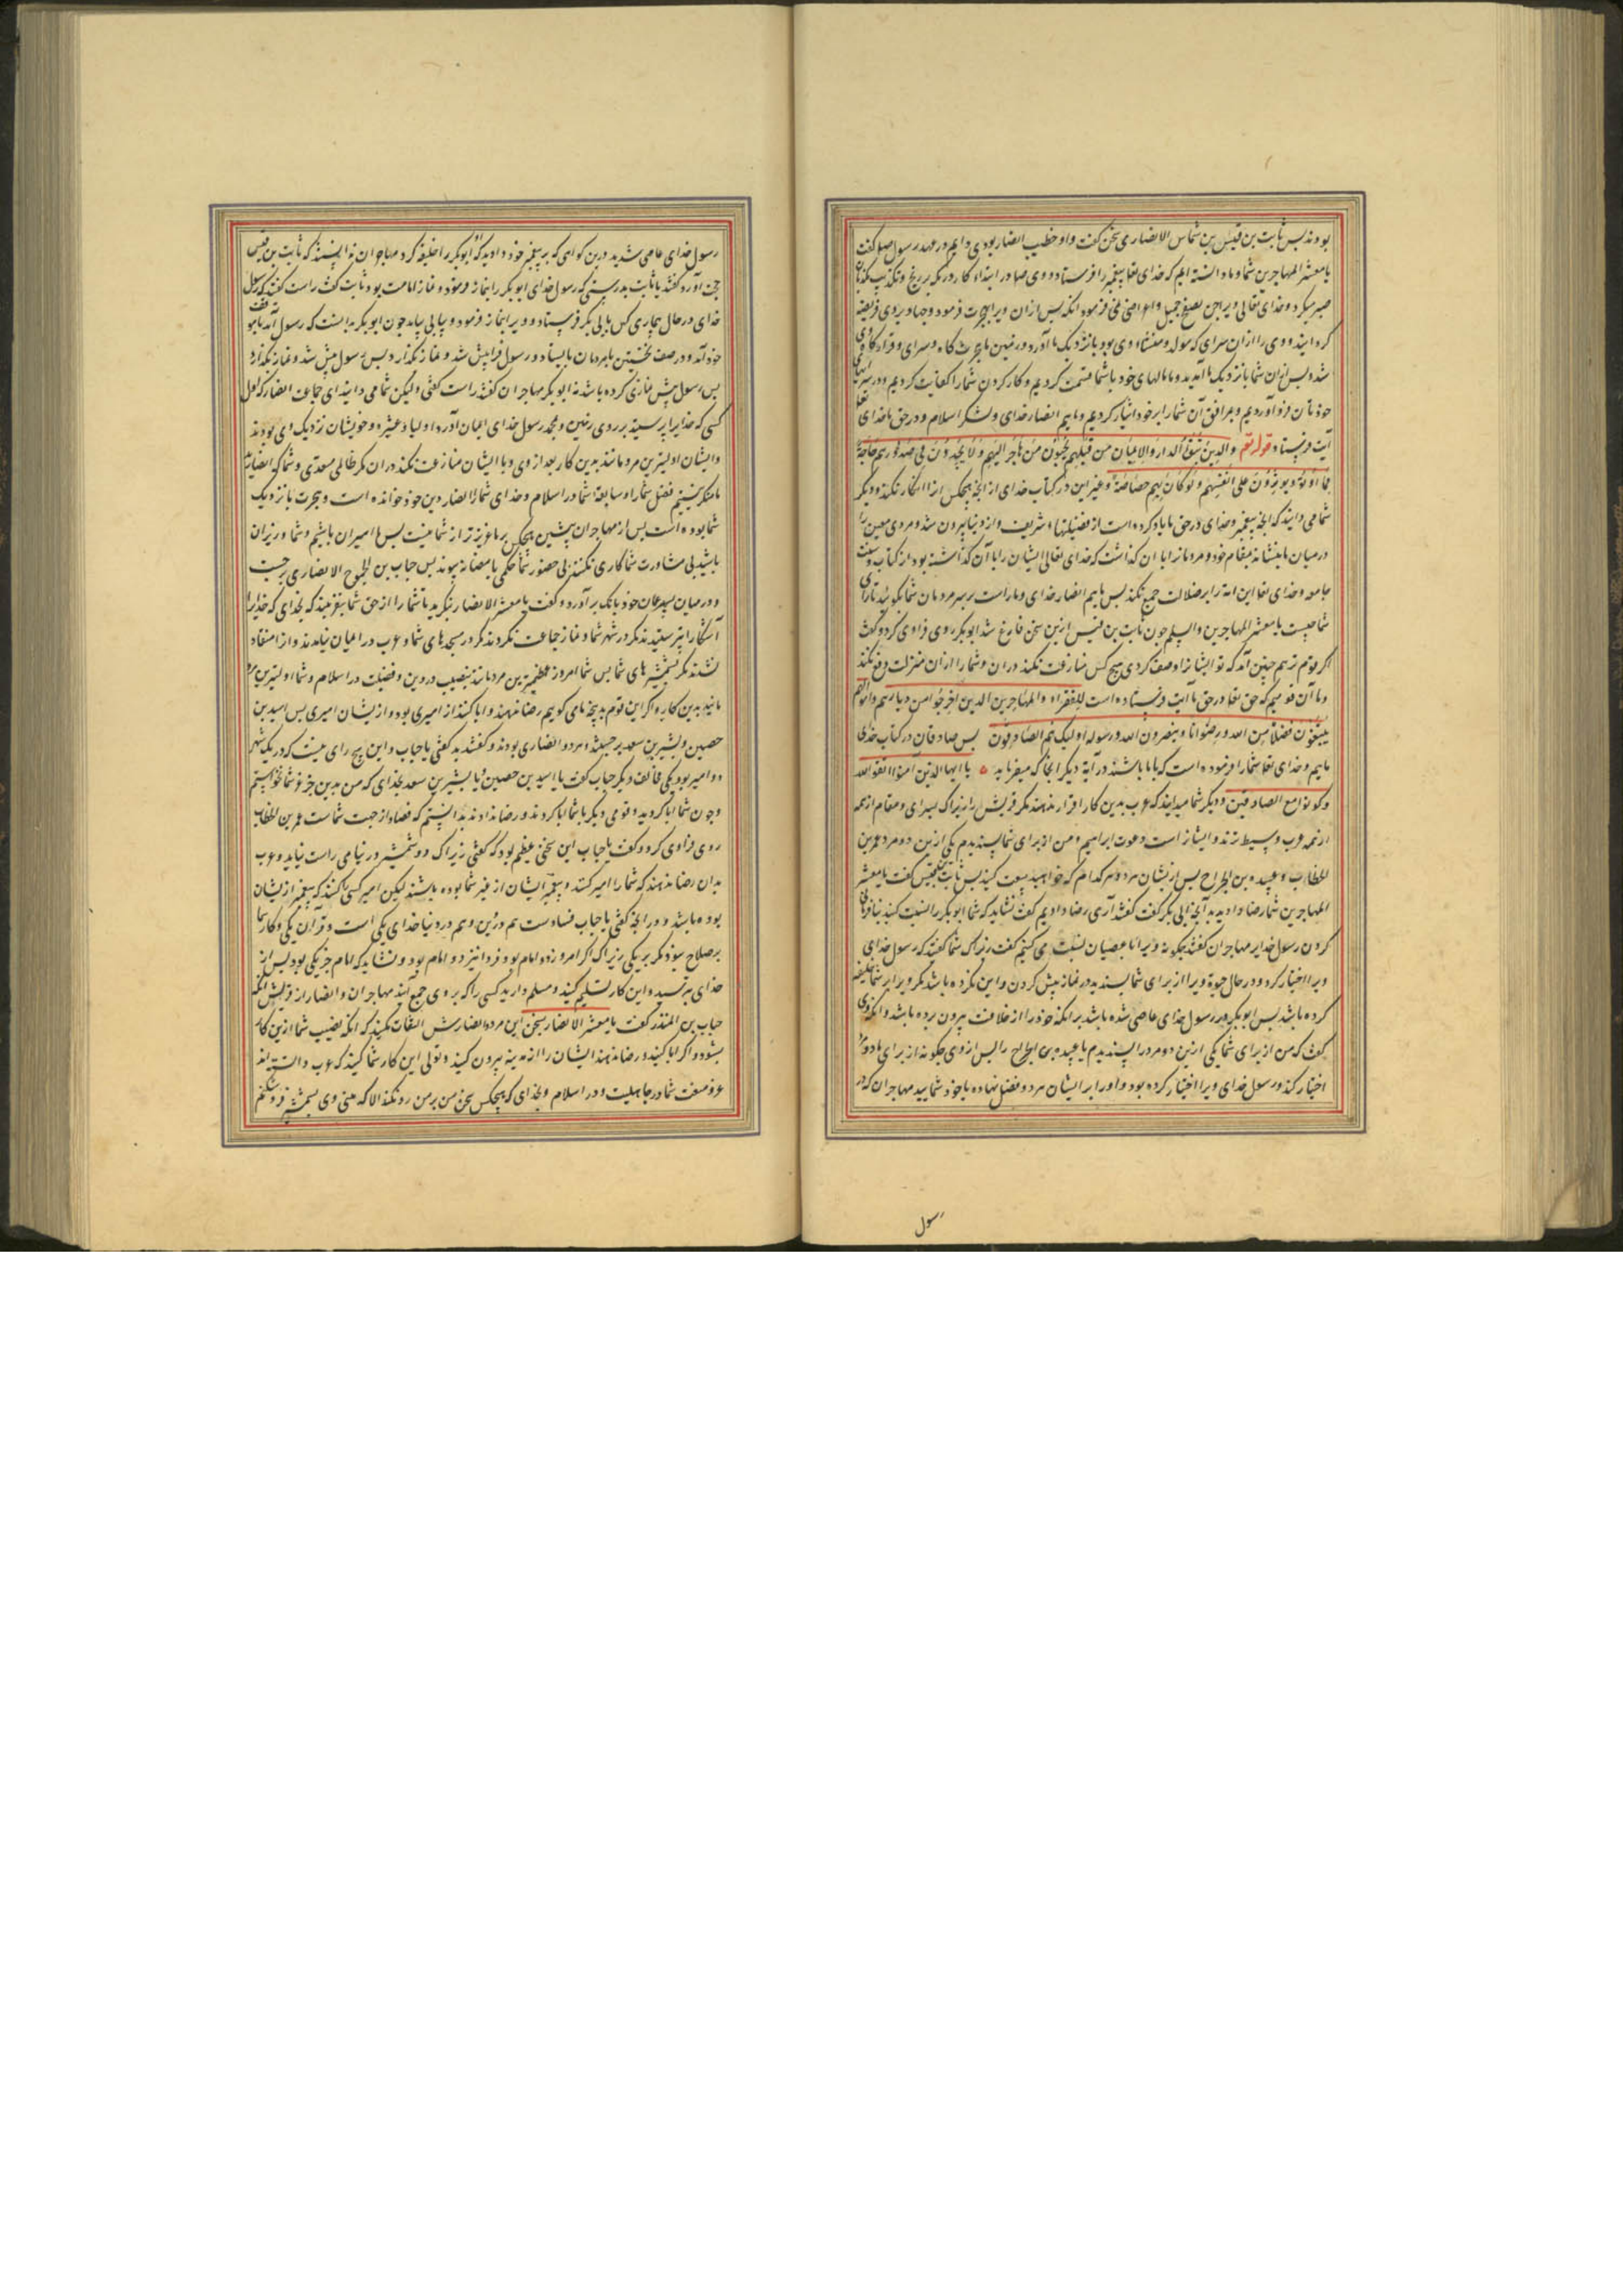 بودند پس ثابت بن قیس بن شماس الانصاری سخن گفت و او خطیب انصار بودی دایم در عهد رسول صلعم گفت
یا معشر المهاجرین شما و ما دانسته ایم که خدای تعا پیغمبر را فرستاد و وی صا در ابتداء کار در مکه بر رنج و تکذیب
صبر میکرد و خدای تعالی ویرا جز بصفح جمیل و اعراض نمی فرمود آنکه پس ازان ویرا بهجرت فرمود و جهاد بر وی فریضه
گردانید و وی را ازان سرای که مولد و منشاء وی بود بانزدیک ما آورد و زمین ما هجرت گاه و سرای و قرارگاه وی
شد و پس ازان شما بانزدیک ما آمدید و ما مالهای خود باشما قسمت کردیم و کار کردن شما را کفایت کردیم و در سرایهای
خودتان فرو آوردیم و بمرافق آن شما را بر خود ایثار کردیم و ماییم انصار خدای و لشکر اسلام و در حق ما خدای تعا
آیت فرستاد قوله تعم والذین تبوؤا الدار والایمان من قبلهم یحبون من هاجر الیهم ولا یجدون فی صدورهم حاجة
مما اوتوا ویؤثرون علی انفسهم ولو کان بهم خصاصة و غیر این در کتاب خدای از آنچه هیچکس آنرا انکار نکند و دیگر
شما می دانید که آنچه پیغمبر خدای در حق ما یاد کرده است از فضیلتها شریف و از دنیا بیرون شد و مردی معین را
در میان ما بننشاند بمقام خود و مردمانرا بآن گذاشت که خدای تعالی ایشان را بآن گذاشته بود از کتاب و سنت
جامعه و خدای تعا این امة را بر ضلالت جمع نکند پس ماییم انصار خدای و ما راست بر سر مردمان شما بگوئید تا رای
شما چیست یا معشر المهاجرین والسلم چون ثابت بن قیس ازین سخن فارغ شد ابوبکر روی فراوی کرد و گفت
اگر قوم تو هم چنین آمد که تو ایشانرا وصف کردی هیچ کس منازعت نکند دران و شما را ازان منزلت دفع نکند
و ما آن قومیم که حق تعا در حق ما آیت فرستاده است للفقراء والمهاجرین الذین اخرجوا من دیارهم واموالهم
یبتغون فضلا من الله ورضوانا وینصرون الله ورسوله اولیک هم الصادقون پس صادقان در کتاب خدای
ماییم و خدای تعا شمارا فرموده است که باما باشند در آیة دیگر آنجا که میفرماید یا ایها الذین آمنوا اتقوا الله
وکونوا مع الصادقین و دیگر شما میدانید که عرب بدین کار اقرار ندهند مگر قریش را زیراکه بسرای و مقام از همه
از همه عرب وسیط ترند و ایشانراست دعوت ابراهیم و من از برای شما پسندیدم یکی ازین دو مرد عمر بن
الخطاب و عبیده بن الجراح پس ازیشان هر دو هرکدام که خواهید بیعت کنید پس ثابت بن قیس گفت یا معشر
المهاجرین شما رضا دادید به آنچه ابی بکر گفت گفتند آری رضا دادیم گفت نشاید که شما ابوبکر را نسبت کنید
کردن رسول خدای را مهاجران گفتند چگونه ویرا با عصیان نسبت می کنیم گفت زیراکه شما گفتید که رسول خدای
ویرا اختیار کرد و در حال حیوة ویرا از برای شما پسندید در نماز پیش کردن و این نکرده باشد مگر ویرا بر شما خلیفه
کرده باشد پس ابوبکر در رسول خدای عاصی شده باشد بر آنکه خود را از خلافت بیرون برده باشد و آنکه وی
گفت که من از برای شما یکی ازین دو مرد را پسندیدم یا عبیده بن الجراح را پس از وی چگونه از برای ما دو مرد
اختیار کند و رسول خدای ویرا اختیار کرده بود و او را بر ایشان هر دو فضل نهاده یا خود شمایید مهاجران که در
رسول
رسول خدای عاصی شدید درین گواهی که بر پیغمبر خود دادید که ابوبکر را خلیفه کرد مهاجران بدانستند که ثابت بن قیس
حجت آورد گفتند یا ثابت بدرستی که رسول خدای ابوبکر را بنماز فرمود و نماز امامت بود ثابت گفت راست گفتید که رسول
خدای در حال بیماری کس بابی بکر فرستاد و ویرا بنماز فرمود و بیابی بیامد چون ابوبکر بدانست که رسول آمد
خود آمد و در صف نخستین بامردمان بایستاد و رسول فراپیش شد و نماز بگذارد پس رسول پیش شد و نماز بگذارد
پس رسول پیش نمازی کرده باشد نه ابوبکر مهاجران گفتند راست گفتی ولیکن شما می دانید ای جماعت انصار که اول
کسی که خدایرا پرستید بر روی زمین و بمحمد رسول خدای ایمان آورد اولیاء و عشیره و خویشان نزدیک وی بودند
و ایشان اولیترین مردمانند بدین کار بعد از وی و با ایشان منازعت نکند دران مگر ظالمی متعدی و شما که انصارید
ما منکر نیستیم فضل شما را و سابقة شما در اسلام و خدای شما را انصار دین خود خوانده است و هجرت بانزدیک
شما بوده است پس از مهاجران پیشین هیچکس بر ما عزیزتر از شما نیست پس ما امیران باشیم و شما وزیران
باشید بی مشاورت شما کاری نکنند و بی حضور شما حکمی بامضا نه پیوندد پس حباب بن الجموح الانصاری برجست
و در میان مردمان خود بانگ برآورد و گفت یا معشر الانصار بنگرید تا شما را از حق شما نفریبند که بخدای که خدایرا
آشکارا نپرستیدند مگر در شهر شما و نماز جماعت نکردند مگر در مسجدهای شما و عرب در ایمان نیامدند و از انقیاد
نشدند مگر بشمشیرهای شما پس شما امروز عظیم ترین مردمانید بنصیب در دین و فضیلت در اسلام و شما اولیترین مردم
مانید بدین کار و اگر این قوم بدینچه ما می گوییم رضا ندهند و ابا کنند از ما امیری بود و از ایشان امیری پس اسید بن
حصین و بشیر بن سعد برجستند و هر دو انصاری بودند و گفتند بد گفتی یا حباب و این هیچ رای نیست که در یک شهر
دو امیر بود یکی مخالف دیگر حباب گفت یا اسید بن حصین و یا بشیر بن سعد بخدای که من بدین جز عز شما نخواستم
و چون شما ابا کردید و قومی دیگر باشما ابا کردند و رضا ندادند بدانستم که قضا از جهت شماست عمر بن الخطاب
روی فراوی کرد و گفت یا حباب این سخنی عظیم بود که گفتی زیراک دو شمشیر در نیامی راست نیاید و عرب
بدان رضا ندهند که شما را امیر کنند و پیغمبر ایشان از غیر شما بوده باشند لیکن امیر کسی را کنند که پیغمبر ازیشان
بوده باشد و در آنچه گفتی یا حباب فسادست هم در دین و هم در دنیا خدای یکی است و قرآن یکی و کار ما
برصلاح نبود مگر بر یکی زیراک اگر امروز دو امام بود فردا نیز دو امام بود و نشاید که امام جز یکی بود پس از
خدای بترسید و این کار تسلیم کنید و مسلم دارید کسی را که بر وی جمع آیند مهاجران و انصار از قریش آنکه
حباب بن المنذر گفت یا معشر الانصار بسخن این مرد و انصارش التفات نکنید که آنکه نصیب شما ازین کار
بشود و اگر ابا کنند و رضا ندهند ایشان را از مدینه بیرون کنید و تولی این کار شما کنید که عرب دانسته اند
عز و منعت شما در جاهلیت و در اسلام و بخدای که هیچکس سخن من بر من رد نکند الا که بینی وی بشمشیر فرو شکنم